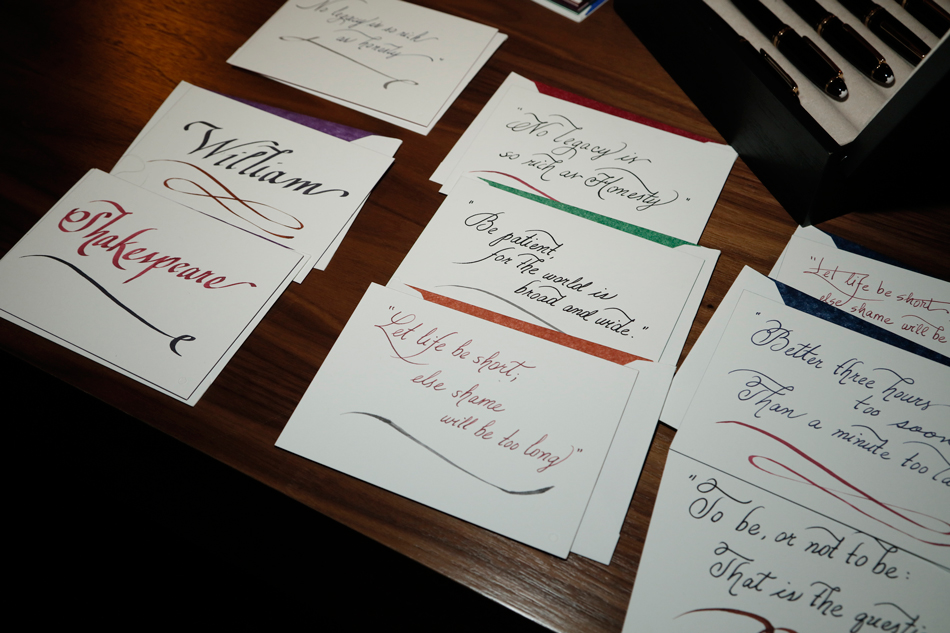 "No legacy is so rich
as honesty"
William
Shakespeare
"No legacy is
so rich as Honesty"
"Be patient,
for the world is
broad and wide."
"Let life be short;
else shame
will be too long"
"Let life be short
else shame will be
"Better three hours
too soon
Than a minute too la
"To be, or not to be:
That is the questi